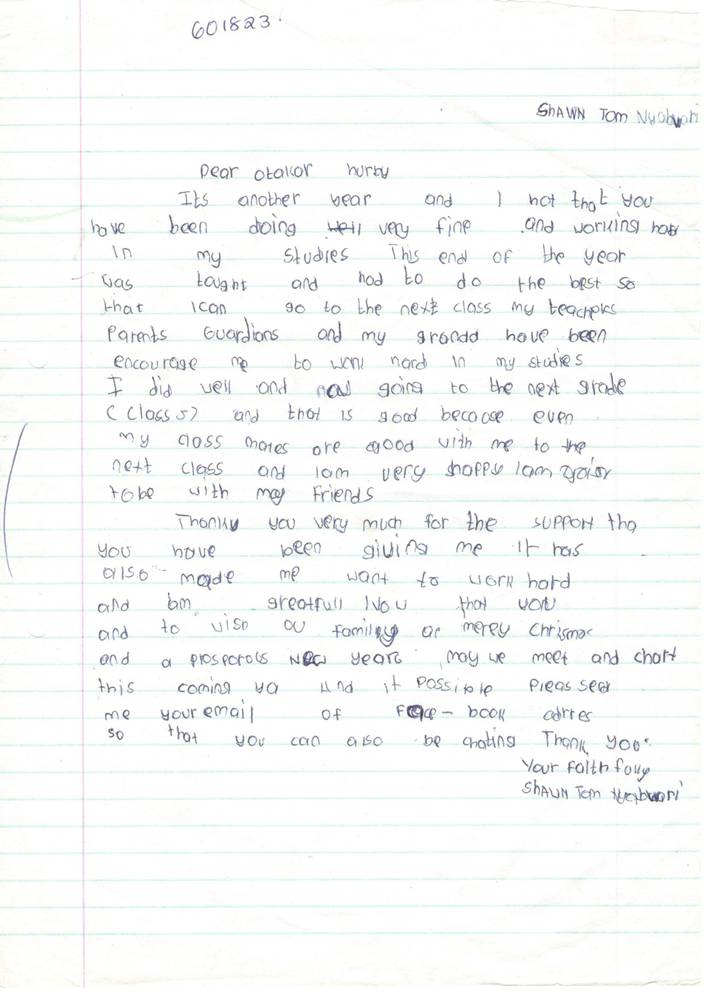 601823.
SHAWN Tom Nyabwari
Dear otakor hurby
Its another bear and I hot that you
have been doing well very fine and working hard
In my studies This end of the year
Was taught and had to do the best so
that I can go to the next class my teachers
Parents Guardians and my grandd have been
encourage me to work hard in my studies
I did well and now going to the next grade
(class 5) and that is good becaose even
my class mates are good with me to the
next class and Iam very shappy Iam
to be with may Friends
Thanky you very much for the SUPPORT tha
you have been giving me It has
also made me want to work hard
and greatfull that
and to wish family ar merey Chrismac
and a prosporots New years may we meet and chart
this coming ya And it Possible Pleas
me your email of Face-book adrres
so that you can also be chating Thank you.
Your Faith fouy
SHAWN Tom Nyabwari